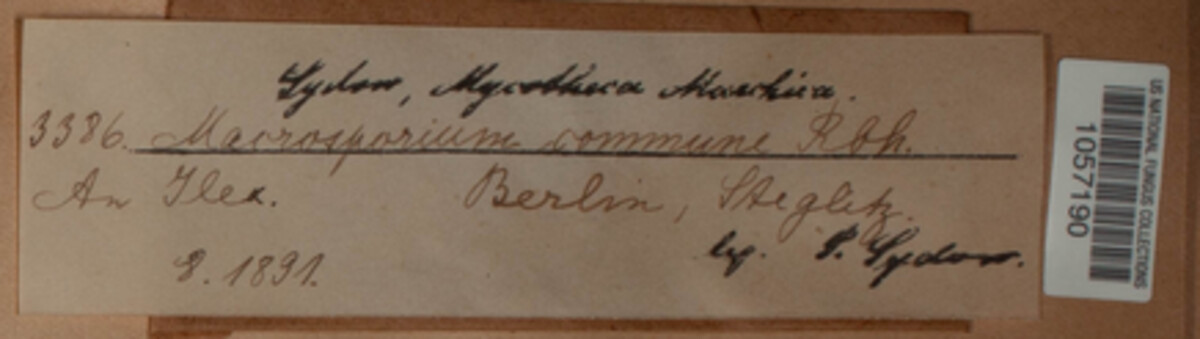 Sydow, Mycotheca Marchica.
3386. Macrosporium commune Rbh.
An Ilex. Berlin, Steglitz.
8. 1891. leg. P. Sydow.
US NATIONAL FUNGUS COLLECTIONS
1057190